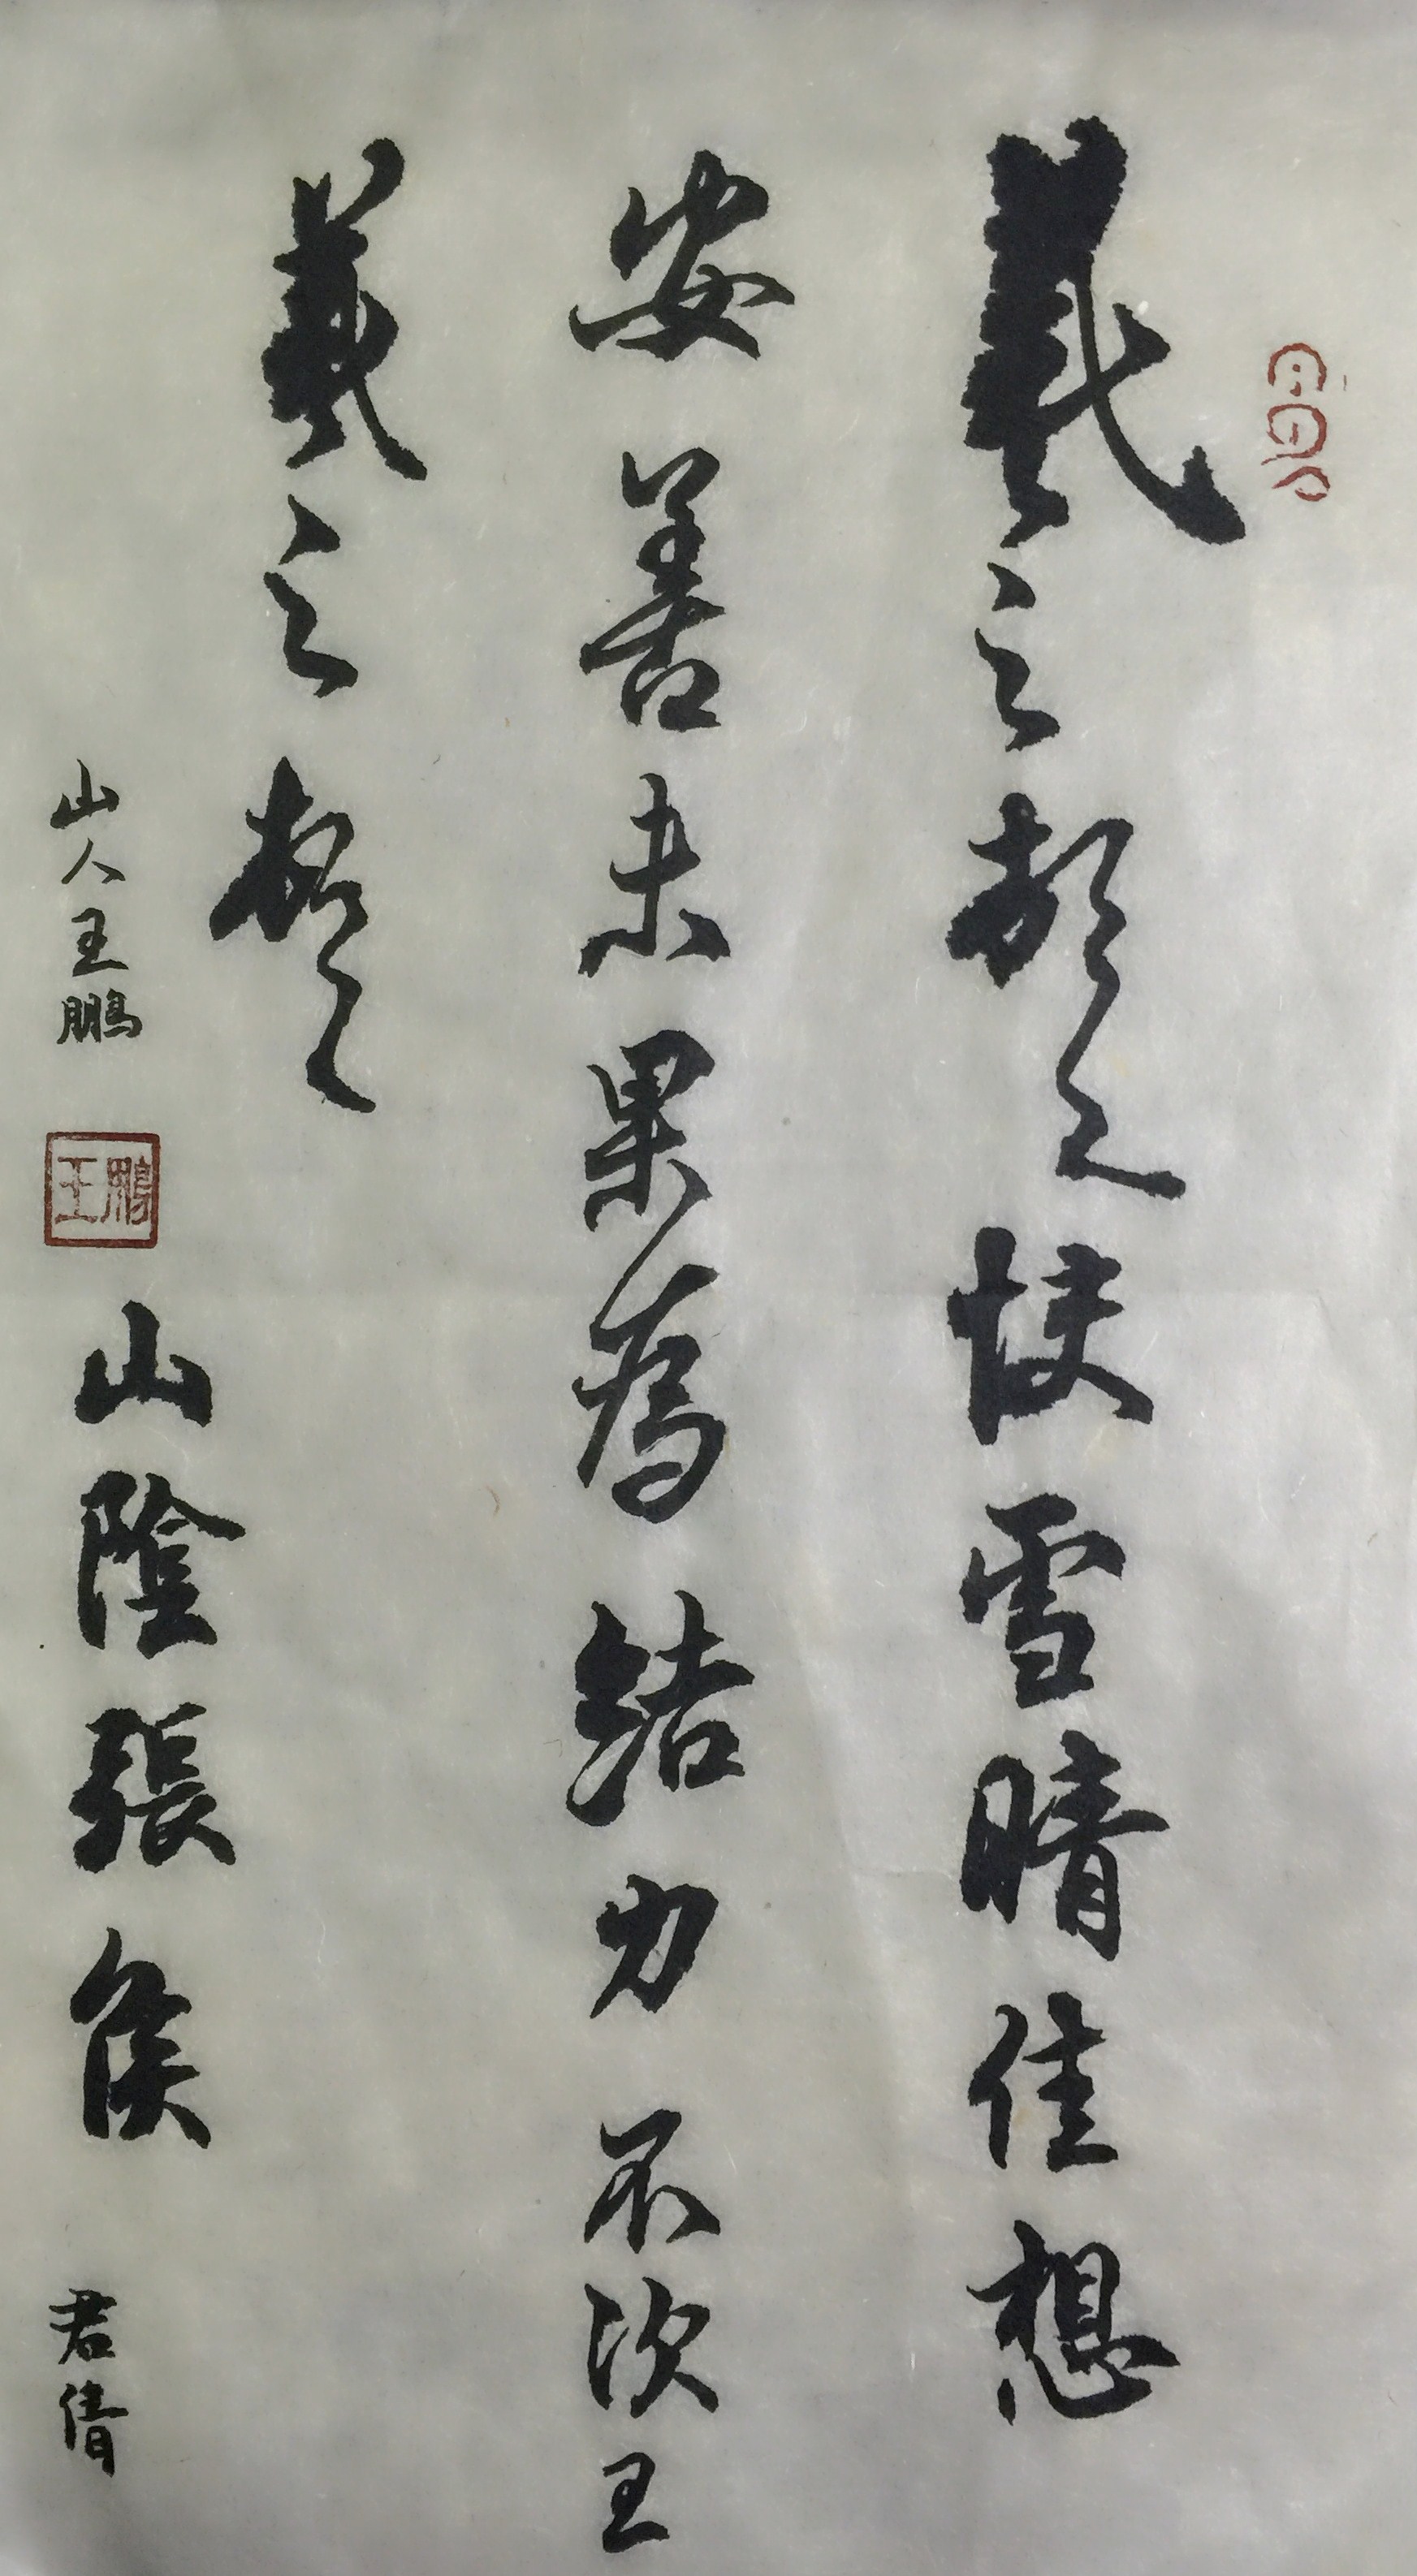 羲之頓首快雪時晴佳想
安善未果為結力不次王
羲之頓首
山陰張侯
君倩
山人王鵬
王鵬